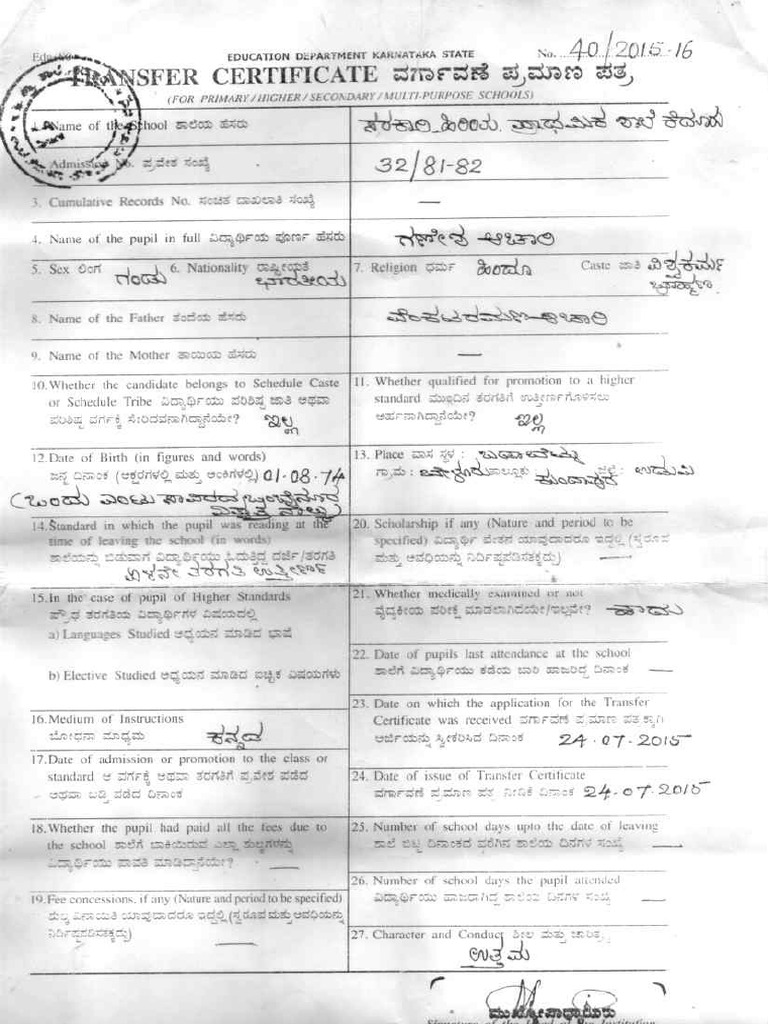 EDUCATION DEPARTMENT KARNATAKA STATE No. 40/2015-16
TRANSFER CERTIFICATE ವರ್ಗಾವಣೆ ಪ್ರಮಾಣ ಪತ್ರ
(FOR PRIMARY/HIGHER/SECONDARY/MULTI-PURPOSE SCHOOLS)
1. Name of the School ಶಾಲೆಯ ಹೆಸರು ಸರಕಾರಿ ಹಿರಿಯ ಪ್ರಾಥಮಿಕ ಶಾಲೆ ಕೆದೂರು
Admission No. ಪ್ರವೇಶ ಸಂಖ್ಯೆ 32/81-82
3. Cumulative Records No. ಸಂಚಿತ ದಾಖಲಾತಿ ಸಂಖ್ಯೆ —
4. Name of the pupil in full ವಿದ್ಯಾರ್ಥಿಯ ಪೂರ್ಣ ಹೆಸರು ಗಣೇಶ ಆಚಾರಿ
5. Sex ಲಿಂಗ ಗಂಡು 6. Nationality ರಾಷ್ಟ್ರೀಯತೆ ಭಾರತೀಯ 7. Religion ಧರ್ಮ ಹಿಂದೂ Caste ಜಾತಿ ವಿಶ್ವಕರ್ಮ
ಬ್ರಾಹ್ಮಣ
8. Name of the Father ತಂದೆಯ ಹೆಸರು ವೆಂಕಟರಮಣ ಆಚಾರಿ
9. Name of the Mother ತಾಯಿಯ ಹೆಸರು —
10. Whether the candidate belongs to Schedule Caste
or Schedule Tribe ವಿದ್ಯಾರ್ಥಿಯು ಪರಿಶಿಷ್ಟ ಜಾತಿ ಅಥವಾ
ಪರಿಶಿಷ್ಟ ವರ್ಗಕ್ಕೆ ಸೇರಿದವನಾಗಿದ್ದಾನೆಯೇ? ಇಲ್ಲ
11. Whether qualified for promotion to a higher
standard ಮುಂದಿನ ತರಗತಿಗೆ ಉತ್ತೀರ್ಣಗೊಳಿಸಲು
ಅರ್ಹನಾಗಿದ್ದಾನೆಯೇ? ಇಲ್ಲ
12. Date of Birth (in figures and words)
ಜನ್ಮ ದಿನಾಂಕ (ಅಕ್ಷರಗಳಲ್ಲಿ ಮತ್ತು ಅಂಕಿಗಳಲ್ಲಿ) 01-08-74
(ಒಂದು ಎಂಟು ಸಾವಿರದ ಒಂಬೈನೂರ
13. Place ವಾಸ ಸ್ಥಳ :
ಗ್ರಾಮ: ತಾಲ್ಲೂಕು ಕುಂದಾಪುರ ಜಿಲ್ಲೆ: ಉಡುಪಿ
14. Standard in which the pupil was reading at the
time of leaving the school (in words)
ಶಾಲೆಯನ್ನು ಬಿಡುವಾಗ ವಿದ್ಯಾರ್ಥಿಯು ಓದುತ್ತಿದ್ದ ದರ್ಜೆ/ತರಗತಿ
ತರಗತಿ ಉತ್ತೀರ್ಣ
15. In the case of pupil of Higher Standards
ಪ್ರೌಢ ತರಗತಿಯ ವಿದ್ಯಾರ್ಥಿಗಳ ವಿಷಯದಲ್ಲಿ
a) Languages Studied ಅಧ್ಯಯನ ಮಾಡಿದ ಭಾಷೆ
b) Elective Studied ಅಧ್ಯಯನ ಮಾಡಿದ ಐಚ್ಛಿಕ ವಿಷಯಗಳು
16. Medium of Instructions
ಬೋಧನಾ ಮಾಧ್ಯಮ ಕನ್ನಡ
17. Date of admission or promotion to the class or
standard ಆ ವರ್ಗಕ್ಕೆ ಅಥವಾ ತರಗತಿಗೆ ಪ್ರವೇಶ ಪಡೆದ
ಅಥವಾ ಬಡ್ತಿ ಪಡೆದ ದಿನಾಂಕ
18. Whether the pupil had paid all the fees due to
the school ಶಾಲೆಗೆ ಬಾಕಿಯಿರುವ ಎಲ್ಲಾ ಶುಲ್ಕಗಳನ್ನು
ವಿದ್ಯಾರ್ಥಿಯು ಪಾವತಿ ಮಾಡಿದ್ದಾನೆಯೇ? —
19. Fee concessions, if any (Nature and period to be specified)
ಶುಲ್ಕ ವಿನಾಯಿತಿ ಯಾವುದಾದರೂ ಇದ್ದಲ್ಲಿ (ಸ್ವರೂಪ ಮತ್ತು ಅವಧಿಯನ್ನು
ನಿರ್ದಿಷ್ಟಪಡಿಸತಕ್ಕದ್ದು) —
20. Scholarship if any (Nature and period to be
specified) ವಿದ್ಯಾರ್ಥಿ ವೇತನ ಯಾವುದಾದರೂ ಇದ್ದಲ್ಲಿ (ಸ್ವರೂಪ
ಮತ್ತು ಅವಧಿಯನ್ನು ನಿರ್ದಿಷ್ಟಪಡಿಸತಕ್ಕದ್ದು) —
21. Whether medically examined or not
ವೈದ್ಯಕೀಯ ಪರೀಕ್ಷೆ ಮಾಡಲಾಗಿದೆಯೇ/ಇಲ್ಲವೇ? ಹೌದು
22. Date of pupils last attendance at the school
ಶಾಲೆಗೆ ವಿದ್ಯಾರ್ಥಿಯು ಕಡೆಯ ಬಾರಿ ಹಾಜರಿದ್ದ ದಿನಾಂಕ —
23. Date on which the application for the Transfer
Certificate was received ವರ್ಗಾವಣೆ ಪ್ರಮಾಣ ಪತ್ರಕ್ಕಾಗಿ
ಅರ್ಜಿಯನ್ನು ಸ್ವೀಕರಿಸಿದ ದಿನಾಂಕ 24-07-2015
24. Date of issue of Transfer Certificate
ವರ್ಗಾವಣೆ ಪ್ರಮಾಣ ಪತ್ರ ನೀಡಿಕೆ ದಿನಾಂಕ 24-07-2015
25. Number of school days upto the date of leaving
ಶಾಲೆ ಬಿಟ್ಟ ದಿನಾಂಕದ ವರೆಗಿನ ಶಾಲೆಯ ದಿನಗಳ ಸಂಖ್ಯೆ —
26. Number of school days the pupil attended
ವಿದ್ಯಾರ್ಥಿಯು ಹಾಜರಾಗಿದ್ದ ಶಾಲೆಯ ದಿನಗಳ ಸಂಖ್ಯೆ —
27. Character and Conduct ಶೀಲ ಮತ್ತು ಚಾರಿತ್ರ್ಯ
ಉತ್ತಮ
ಮುಖ್ಯೋಪಾಧ್ಯಾಯರು